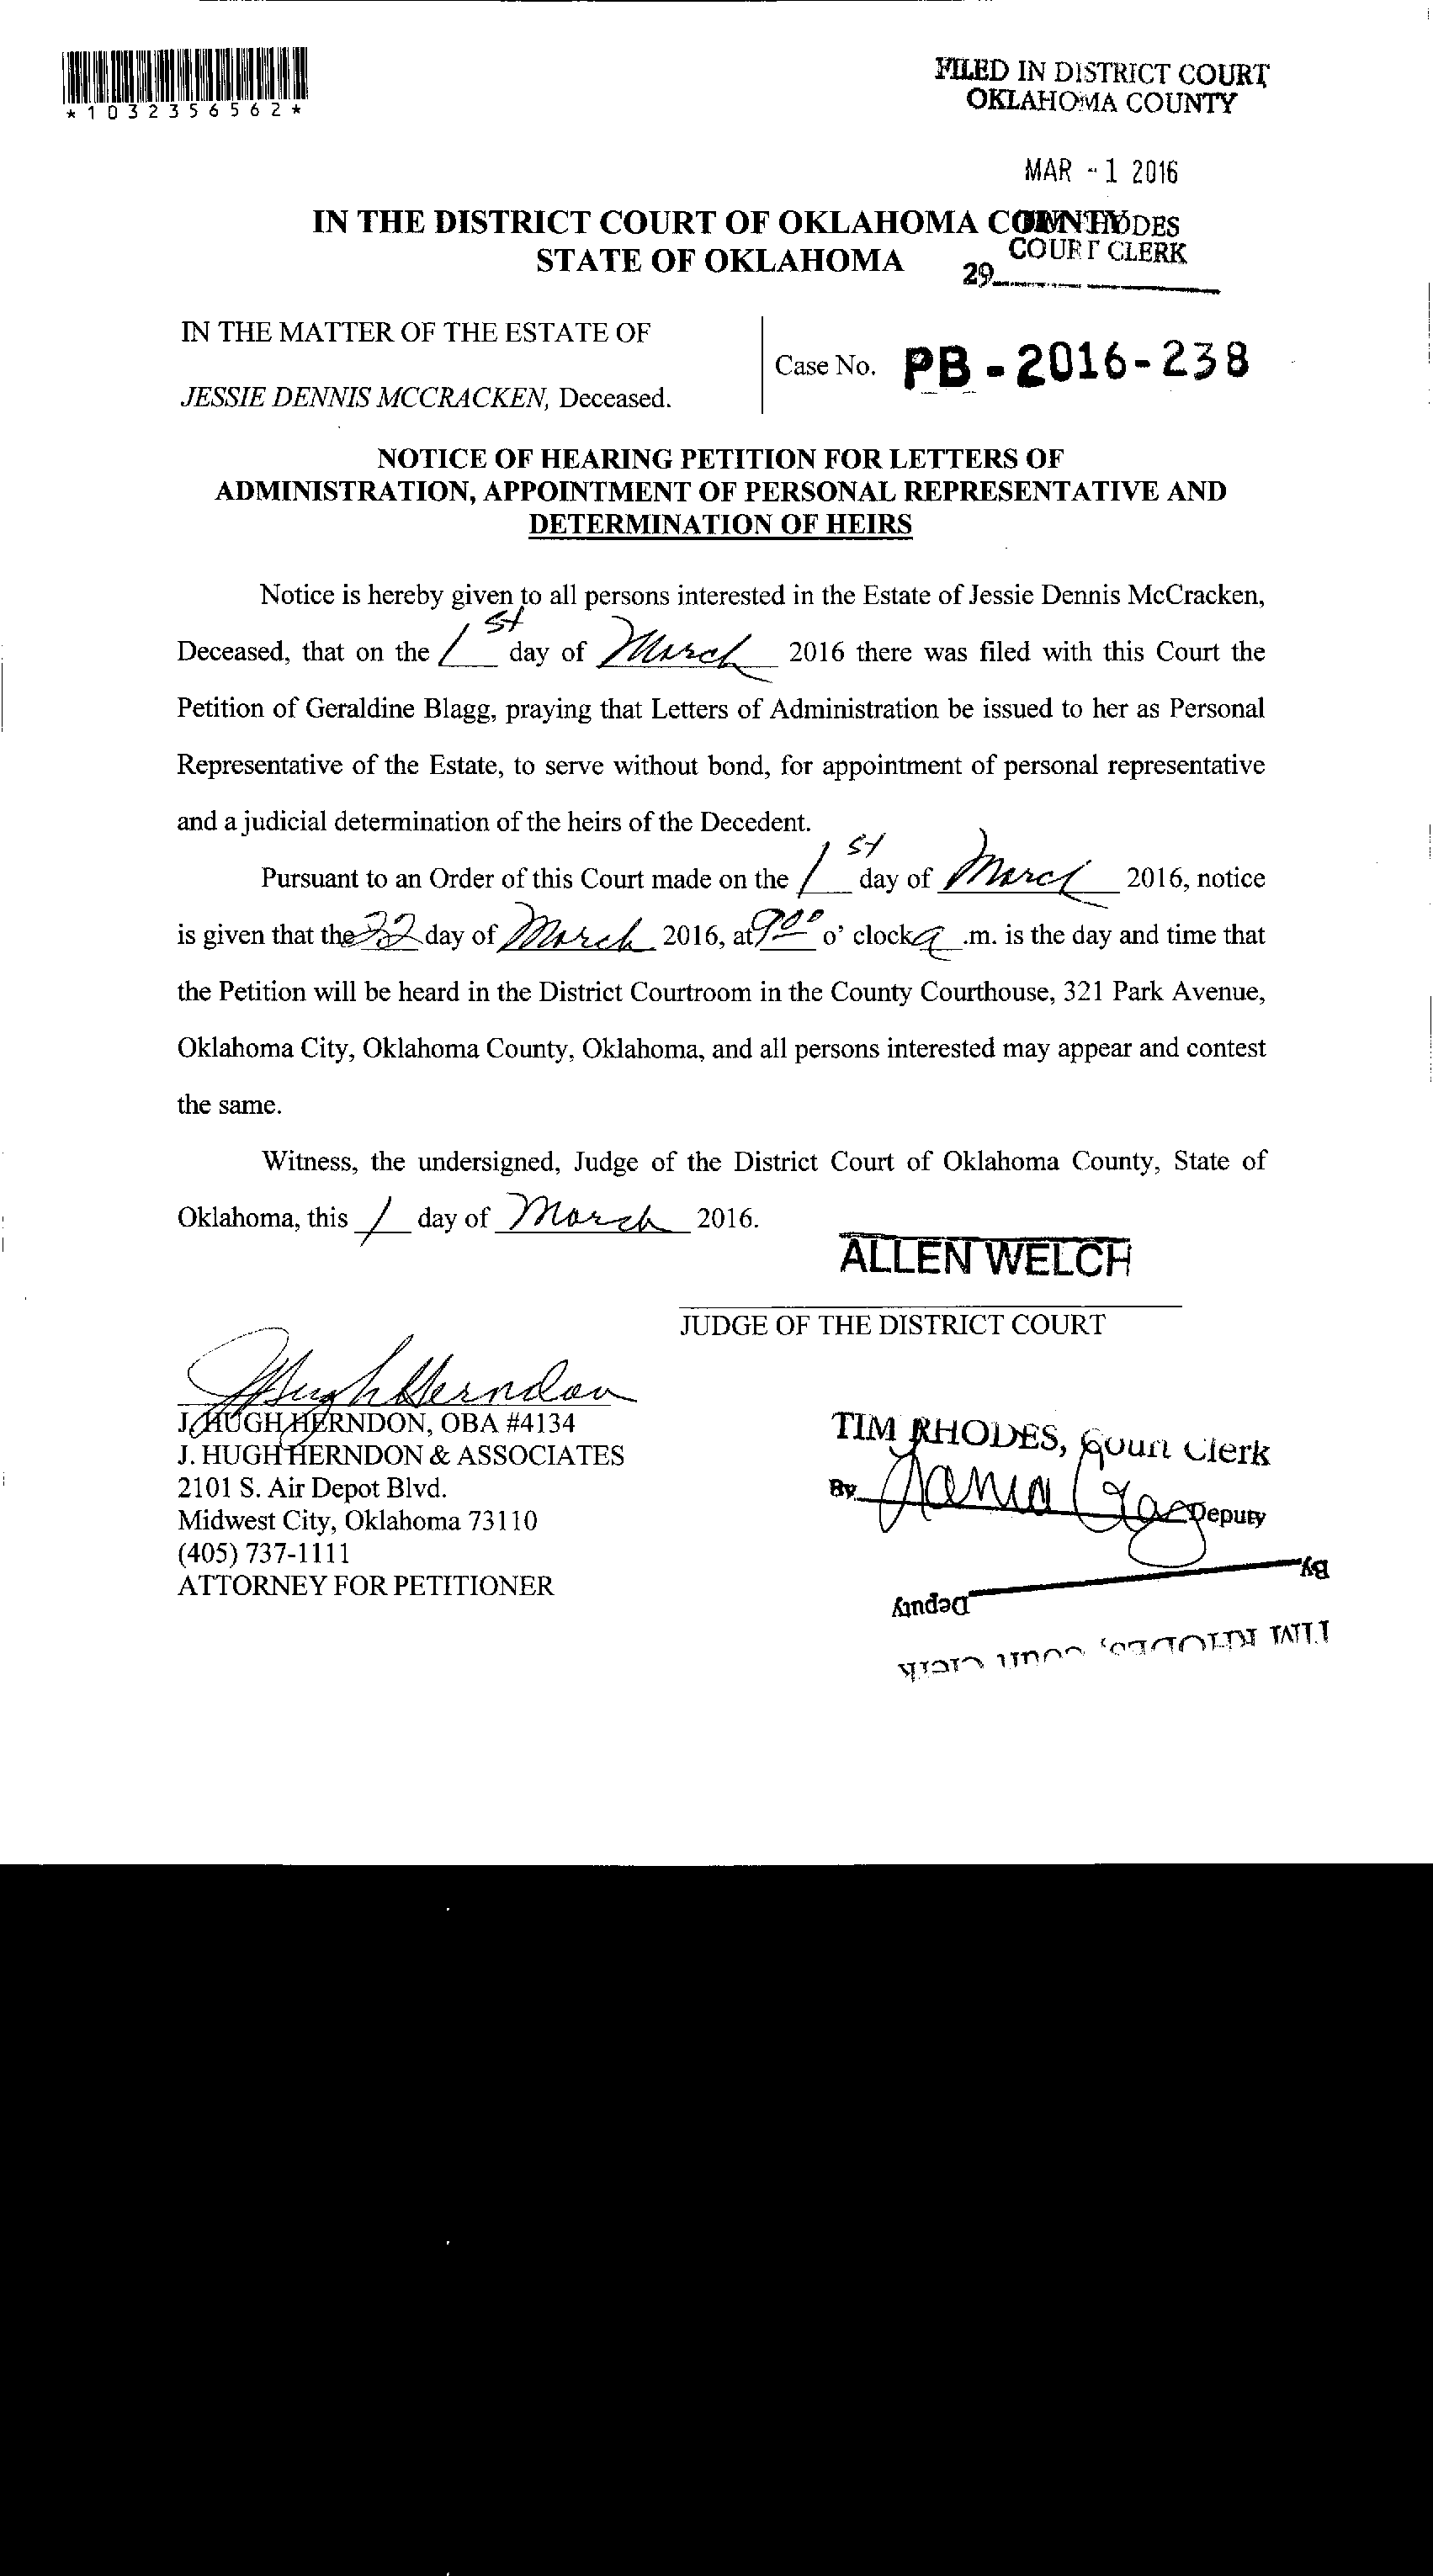 *1032356562*
FILED IN DISTRICT COURT
OKLAHOMA COUNTY
MAR - 1 2016
IN THE DISTRICT COURT OF OKLAHOMA COUNTY
STATE OF OKLAHOMA
RHODES
COURT CLERK
29
IN THE MATTER OF THE ESTATE OF
JESSIE DENNIS MCCRACKEN, Deceased.
Case No. PB-2016-238
NOTICE OF HEARING PETITION FOR LETTERS OF
ADMINISTRATION, APPOINTMENT OF PERSONAL REPRESENTATIVE AND
DETERMINATION OF HEIRS
Notice is hereby given to all persons interested in the Estate of Jessie Dennis McCracken,
Deceased, that on the 1st day of March 2016 there was filed with this Court the
Petition of Geraldine Blagg, praying that Letters of Administration be issued to her as Personal
Representative of the Estate, to serve without bond, for appointment of personal representative
and a judicial determination of the heirs of the Decedent.
Pursuant to an Order of this Court made on the 1st day of March 2016, notice
is given that the 22 day of March 2016, at 9:00 o' clock a .m. is the day and time that
the Petition will be heard in the District Courtroom in the County Courthouse, 321 Park Avenue,
Oklahoma City, Oklahoma County, Oklahoma, and all persons interested may appear and contest
the same.
Witness, the undersigned, Judge of the District Court of Oklahoma County, State of
Oklahoma, this 1 day of March 2016.
ALLEN WELCH
JUDGE OF THE DISTRICT COURT
J Hugh Herndon
J. HUGH HERNDON, OBA #4134
J. HUGH HERNDON & ASSOCIATES
2101 S. Air Depot Blvd.
Midwest City, Oklahoma 73110
(405) 737-1111
ATTORNEY FOR PETITIONER
TIM RHODES, Court Clerk
By Deputy
By Deputy
TIM RHODES, Court Clerk